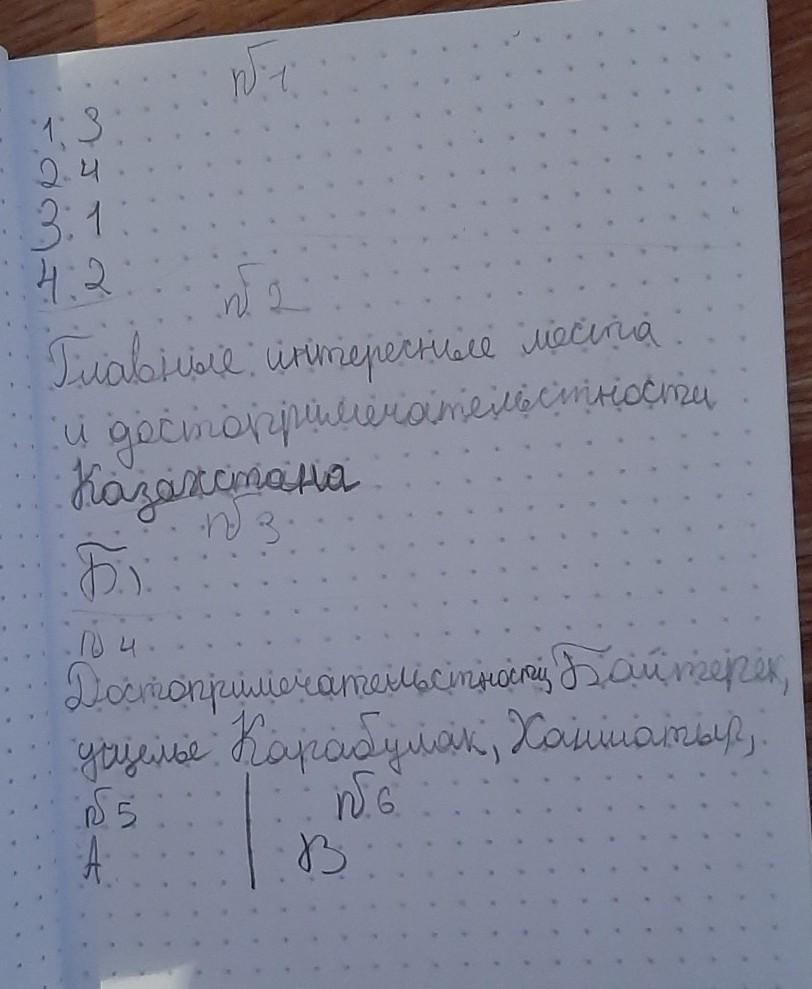 №1
1. 3
2. 4
3. 1
4. 2
№2
Главные интересные места
и достопримечательстности
Казахстана
№3
Б)
№4
Достопримечательстности, Байтерек,
ущелье Карабулак, Ханшатыр,
№5 | №6
А | В